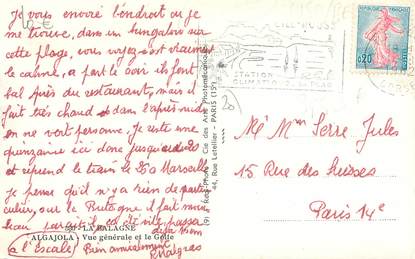 Je vous envoie l'endroit où je
me trouve, dans un bungalow sur
cette plage, vous voyez c'est vraiment
le calme, à part le soir ils font
bal près du restaurant, mais il
fait très chaud et dans l'après midi
on ne voit personne. Je reste une
quinzaine ici donc jusqu'au 20
et reprend le train le 20 à Marseille
Je pense qu'il n'y a rien de parti
culier, sur la Bretagne il fait moins
beau paraît-il
LA BALAGNE
ALGAJOLA - Vue générale et le Golfe
à l'Escale Bien amicalement
Malgras
Cie des Arts Photomécaniques
44, Rue Letellier - PARIS (15e)
STATION
REPUBLIQUE FRANCAISE
0,20
POSTES
CORSE
20
Mr Mme Serre Jules
15 Rue des Suisses
Paris 14e